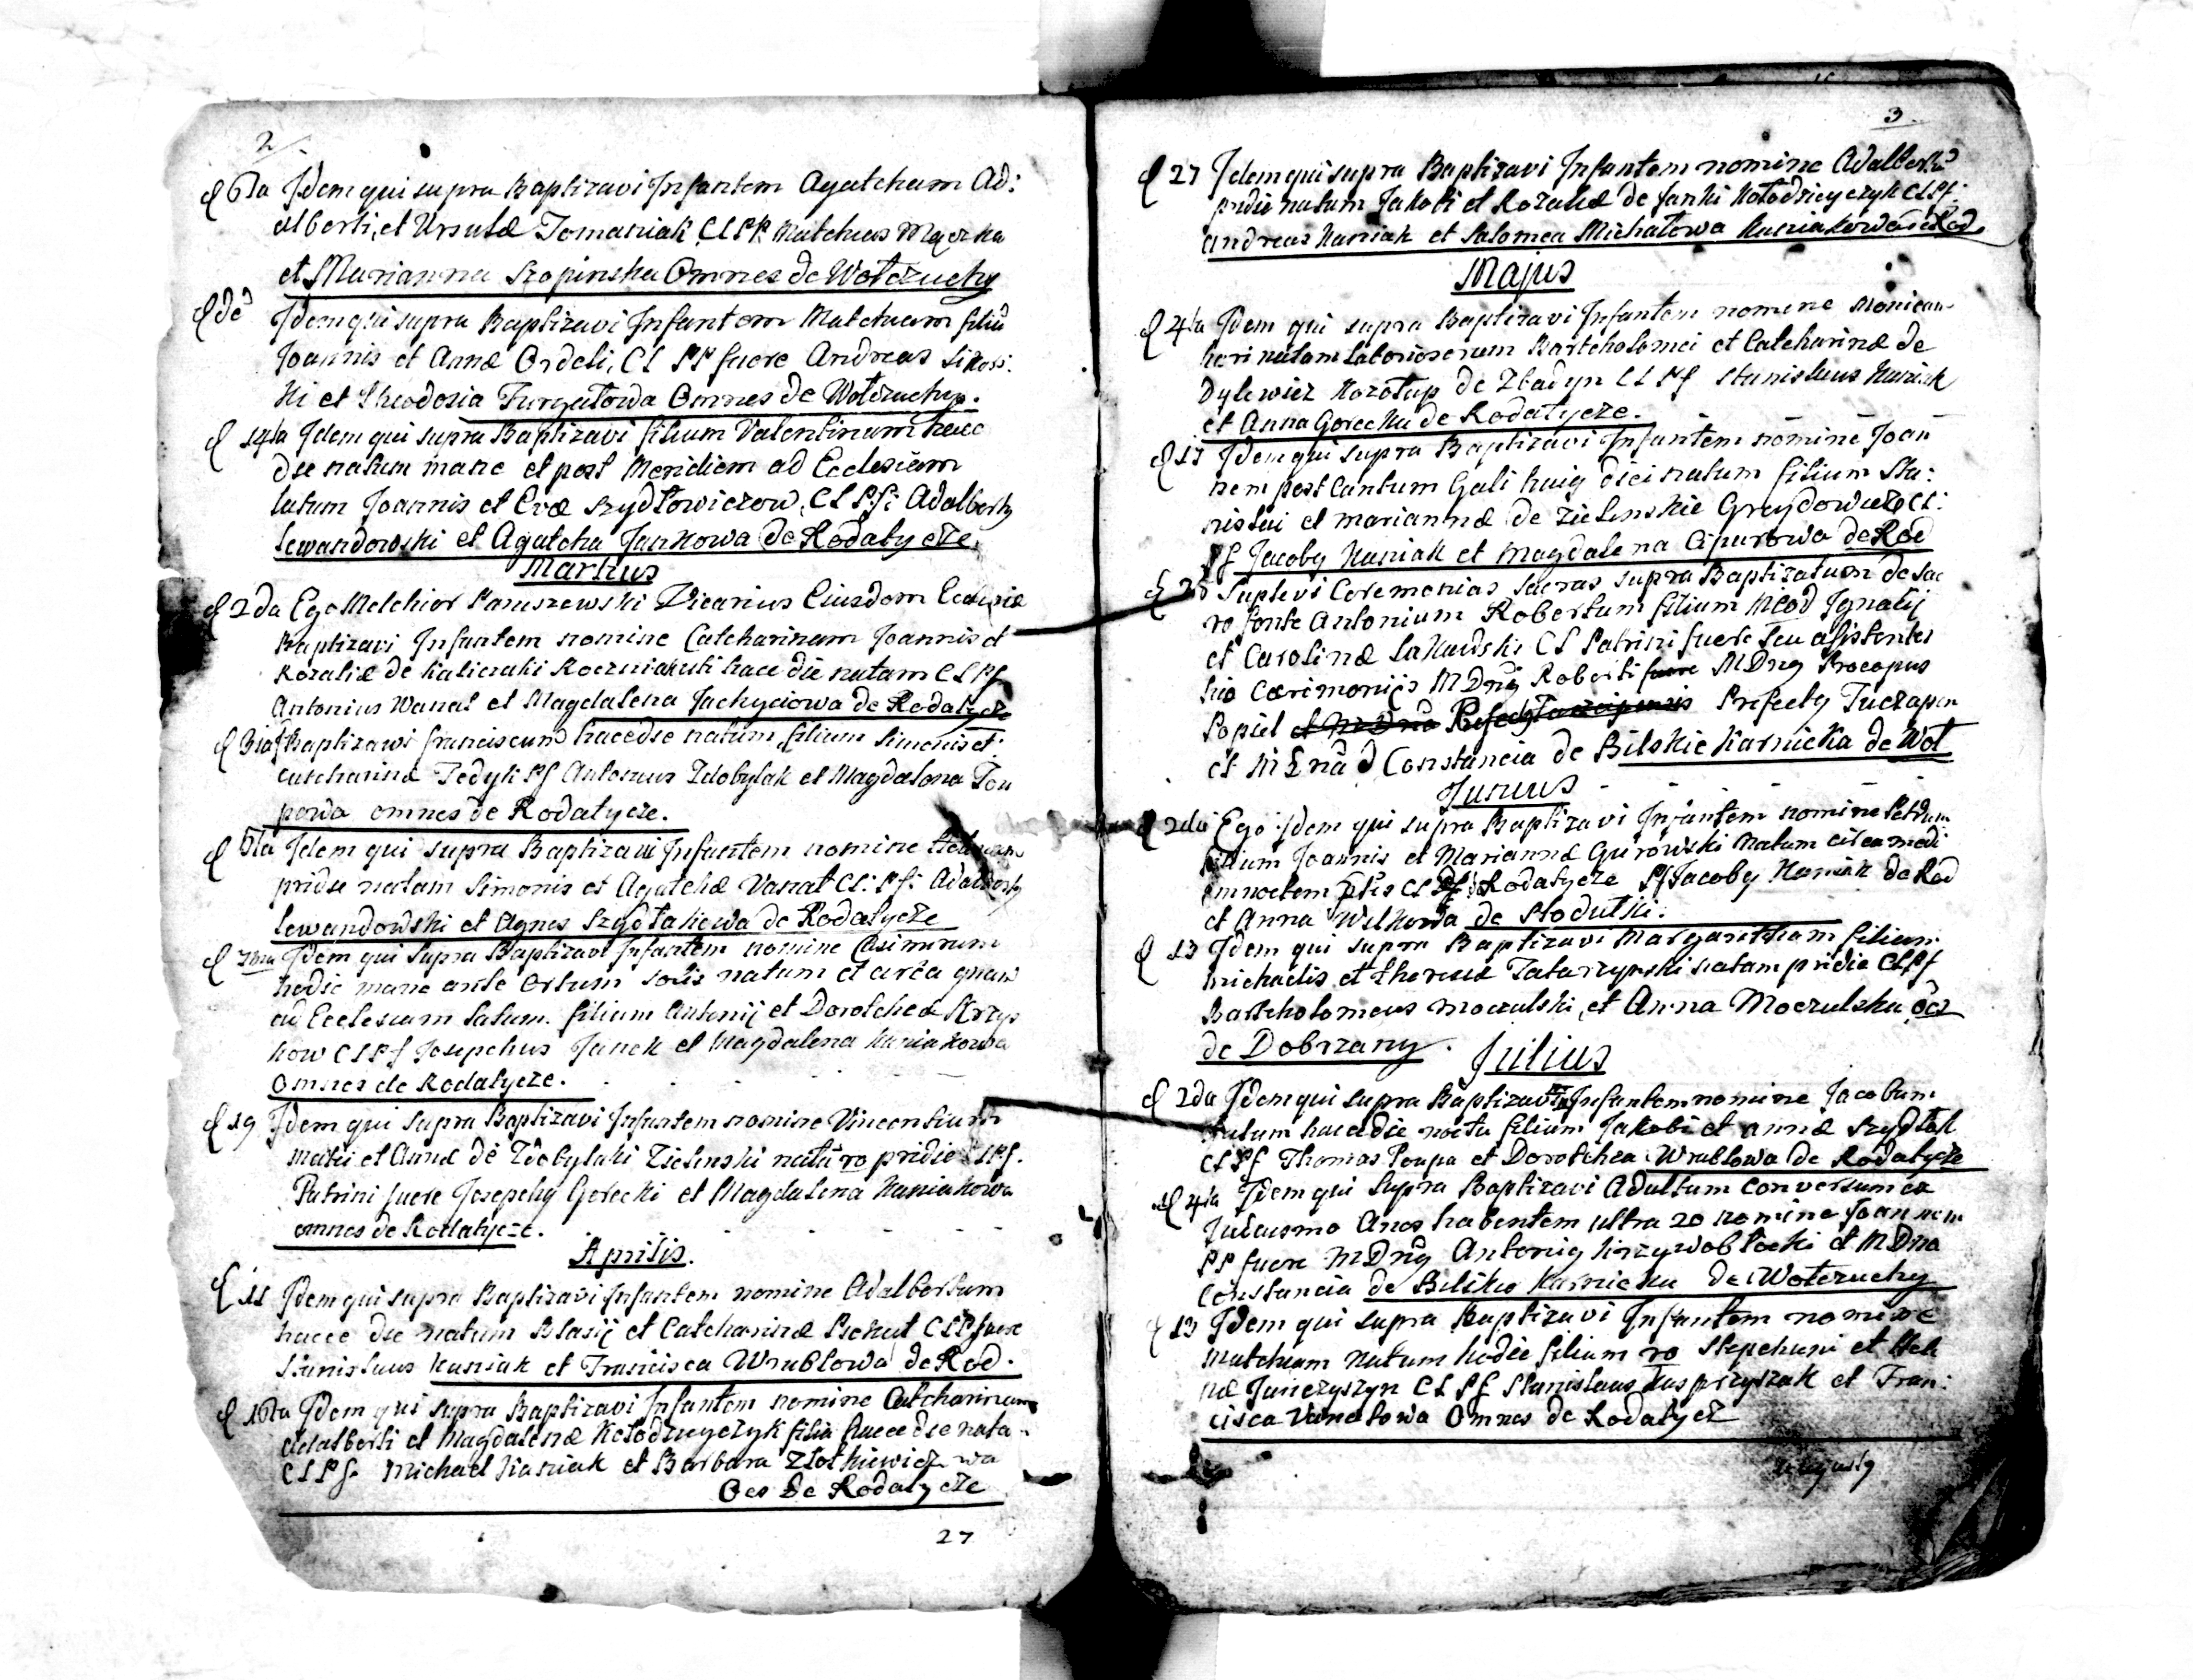 2
6ta Idem qui supra Baptizavi Infantem Agatcham Ad:
alberti, et Ursulæ Tomaniak CLPP. Matcheus
et Marianna Szopinska Omnes de Wołczuchy
Idem qui supra Baptizavi Infantem Matcheum filiū
Joannis et Annæ Ordeli, CL PP fuere Andreas
ki et Theodosia Omnes de Wołczuchy.
14ta Idem qui supra Baptizavi filium Valentinum hacce
die natum mane et post Meridiem ad Ecclesiam
latum Joannis et Evæ Szydłowiczow, CL P.f: Adalberty
Lewandowski et Agatcha Jankowa de Rodatycze.
Martius
2da Ego Melchior Vicarius Eiusdem Ecclesiæ
Baptizavi Infantem nomine Catcharinam Joannis et
Rozaliæ de hacce die natam CLPf
Antonius Wanat et Magdalena Jachyciowa de Rodatycze
3ia Baptizavi franciscum hacce die natum, filium Simonis et
Catcharinæ Fedyk Pf Antonius Zdobylak et Magdalena
powa omnes de Rodatycze.
Idem qui supra Baptizavi Infantem nomine
pridie natam Simonis et Agatchæ Vanat CL: P.f: Adalberty
Lewandowski et Agnes Szydłakowa de Rodatycze
Idem qui supra Baptizavi Infantem nomine Casimirum
hodie mane ante Ortum solis natum et circa
ad Ecclesiam latum. filium Antonij et Dorotcheæ Krzys
kow CLPf Josephus Janek et Magdalena Kaniakowa
Omnes de Rodatycze.
19 Idem qui supra Baptizavi Infantem nomine Vincentium
Matei et Annæ de Zdobylaki Zielinski natū ro pridie CLPf.
Patrini fuere Josephy Gorecki et Magdalena Kaniakowa
omnes de Rodatycze.
Aprilis.
11 Idem qui supra Baptizavi Infantem nomine Adalbertum
hacce die natum Blasij et Catcharinæ CLPf fuere
Stanislaus Kaniak et Francisca Wrublowa de Rod.
16ta Idem qui supra Baptizavi Infantem nomine Catcharinam
Adalberti et Magdalenæ Kołodzieyczyk filia hacce die nata
CLPf. Michael Kaniak et Barbara
Oes de Rodatycze
27
3
27 Idem qui supra Baptizavi Infantem nomine Adalbertū
pridie natum Jakobi et Rozaliæ de Janki Kołodzieyczyk CLPf:
Andreas Kaniak et Salomea Michałowa Kaniakowa de Rod.
Majus
4ta Idem qui supra Baptizavi Infantem nomine Monicam
heri natam laboriosorum Bartcholomei et Catcharinæ de
Dylewicz de CLPf Stanislaus Kaniak
et Anna Gorecka de Rodatycze.
Idem qui supra Baptizavi Infantem nomine Joan
nem post Cantum Gali huig diei natum filium Sta:
nislai et Mariannæ de Zielinskie CL:
Pf Jacoby Kaniak et Magdalena de Rod
Suplevi Ceremonias sacras supra Baptizatum de sac
ro fonte Antonium Robertum filium MCOD Ignatij
et Carolinæ CL Patrini fuere seu asistentes
his Cærimonijs MDny Roberti fuere MDny Procopus
Popiel Prefecty
et M Dna D Constancia de Bilskie Karnicka de Woł
Junius
2da Ego Idem qui supra Baptizavi Infantem nomine Petrum
filium Joannis et Mariannæ Gurowski natum circa medi
amnoctem CL Rodatycze Pf Jacoby Kaniak de Rod
et Anna Wilkowa de Stodulki.
13 Idem qui supra Baptizavi Margaretham filiam
Michaelis et Theresiæ natam pridie CLPf
Bartcholomeus Moczulski, et Anna Moczulska oes
de Dobrzany.
Julius
2da Idem qui supra Baptizavi Infantem nomine Jacobum
natum hacce die noctu filium Jakobi et Annæ Szydłak
CLPf Thomas Poupa et Dorotchea Wrublowa de Rodatycze
4ta Idem qui supra Baptizavi Adultum conversum ex
Judaismo Anos habentem ultra 20 nomine Joannem
PP fuere MDny Antoniy Krzywobłocki et MDna
Constancia de Bilsko Karnicka de Wołczuchy
13 Idem qui supra Baptizavi Infantem nomine
Matcheum natum hodie filium ro Stepchani et Hele
næ Janczyszyn CLPf Stanislaus Kasprzyszak et Fran:
cisca Vanatowa Omnes de Rodatycz
Augusty